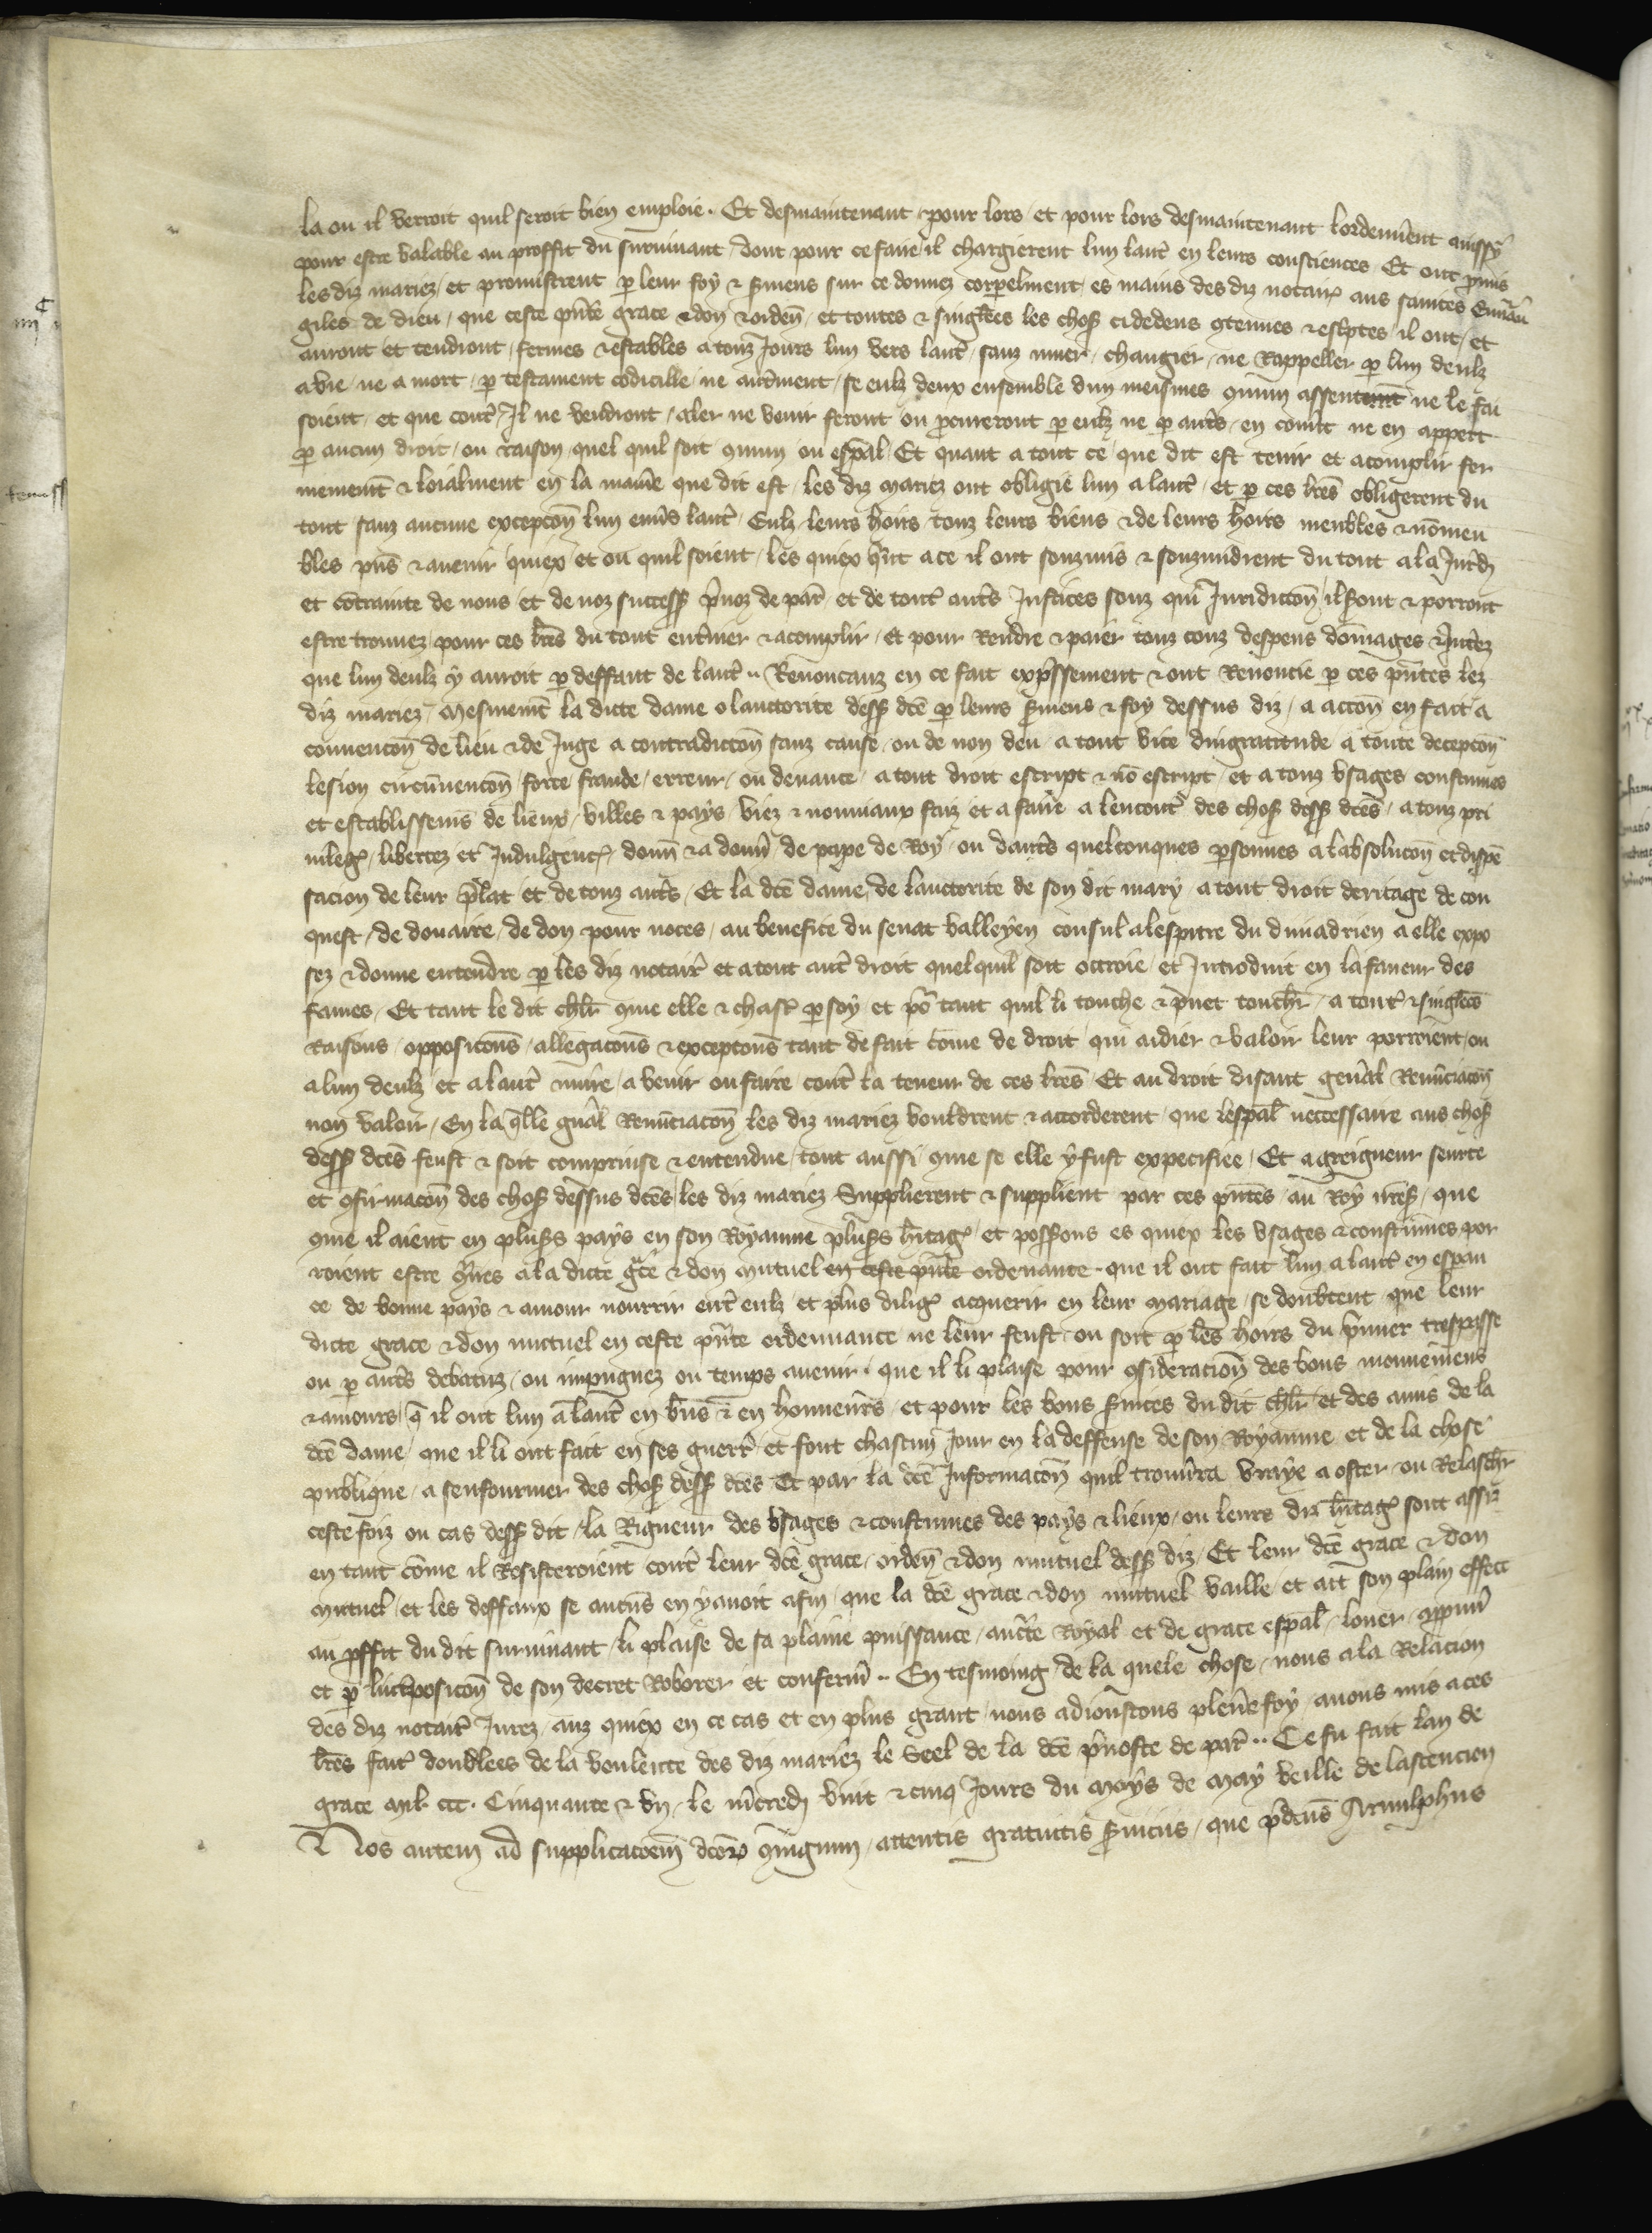 la ou il verroit quil seroit bien emploie. Et desmaintenant pour lors / et pour lors desmaintenant lordenem̃ent aussy
pour estre valable au proffit du suruiuant / dont pour ce faire / il chargierent lun laut᷑ en leurs consciences Et ont p̃mis
les diz mariez / et promistrent p̱ leur foy ⁊ s̃mens sur ce donnez corpelment / es mains des diz notair᷑ aus saintes Euuãn
giles de dieu / que ceste pñte grace ⁊ don ⁊ ordeñ / et toutes ⁊ singl̃es les choses cidedens ꝯtenues ⁊ esc̃ptes / il ont / et
auront et tendront / fermes ⁊ estables a touz Jours lun vers laut᷑ / sanz muer / changier / ne Rappeller p̱ lun deulz
a vie / ne a mort / p̱ testament codicille / ne autrem̃ent / se eulz deux ensemble dun meismes ꝯmun assentemt̃ ne le fai
soient / et que cont᷑ / Il ne vendront / aler ne venir feront ou p̱cureront p̱ eulz ne p̱ aut̃s / en couulz ne en appert
p̱ aucun droit / ou raison / quel quil soit ꝯmun ou esp̃al / Et quant a tout ce / que dit est tenir et acomplir fer
mement̃ ⁊ loialment en la mañe que dit est / les diz mariez ont obligié lun a laut᷑ / et p̱ ces lr̃es obligerent du
tout sanz aucune excepcoñ lun enũs laut᷑ / Eulz / leurs hoirs / touz leurs biens ⁊ de leurs hoirs meubles ⁊ nõmeu
bles pñs ⁊ auenir quiex / et ou quil soient / les quiex q̃nt a ce il ont souzmis ⁊ souzmidrent du tout a la Jur̃d
et cõtrainte de nous / et de noz success᷑ p̃uoz de par᷑ / et de tout᷑ aut̃s Justices souz qui Juridiccoñ / il s̃ont ⁊ porront
estre trouuez / pour ces lr̃es du tout ent̃iner ⁊ acomplir / et pour Rendre ⁊ paier touz couz despens dõmages ⁊ Jnt̃ez
que lun deulz y auroit p̱ deffaut de laut᷑ .. Renoncanz en ce fait exp̃ssement ⁊ ont Renoncie p̱ ces pñtes lez
diz mariez / Mesmemt̃ la dicte dame o lauctorite dess᷑ dc̃e p̱ leurs s̃mens ⁊ foy dessus diz / a accoñ en fait a
conuencoñ de lieu ⁊ de Juge a contradiccoñ sanz cause / ou de non deu a tout vice dingratitude a toute decepcoñ
lesion circũuencoñ / force fraude / erreur / ou deuance / a tout droit escript ⁊ nõ escript / et a touz vsages coustumes
et establissem̃s de lieux / villes ⁊ pays / viez ⁊ nouuiaux faiz et a faire a lencont᷑ des chos᷑ dess᷑ dc̃es / a touz pri
uileg᷑ / libertez et Indulgenc᷑ / donñ ⁊ a donñ de pape de Roy / ou daut̃s quelconques p̱sonnes a labsolucoñ et dispẽ
sacion de leur p̃lat et de touz aut̃s / Et la dc̃e dame / de lauctorite de son dit mary / a tout droit deritage de con
quest / de douaire / de don pour noces / au benefice du senat valleyen consul a lespitre du diuiadrien a elle expo
sez ⁊ donne entendre p̱ les diz notair᷑ et a tout aut᷑ droit quel quil soit octroie / et Introduit en la faueur des
fames / Et tant le dit chl̃r ꝯme elle ⁊ chasc᷑ p̱ soy / et põ tant quil li touche ⁊ puet touch᷑ / a tout᷑ ⁊ singl̃es
Raisons / opposicoñs / allegacoñs ⁊ excepcoñs tant de fait cõme de droit / qui aidier ⁊ valoir leur porroient / ou
a lun deulz et a laut᷑ nuire / a venir ou faire / cont᷑ la teneur de ces lr̃es / Et au droit disant gen̾al Renũciacoñ
non valoir / En la q̃lle gñal Renũciacoñ les diz mariez vouldrent ⁊ accorderent / que lesp̃al neccessaire aus chos᷑
dess᷑ dc̃es feust ⁊ soit comprinse ⁊ entendue / tout aussi ꝯme se elle y fust expecifiee / Et a greigneur seurte
et ꝯfirmacoñ des chos᷑ dessus dc̃es / les diz mariez Supplierent ⁊ supplient par ces pñtes / au Roy nr̃es᷑ / que
ꝯme il aient en plus̃s pays en son Royaume plus̃s h̃itag᷑ et poss̃ons es quiex les vsages ⁊ coustumes por
roient estre ꝯt̃res a la dicte gr̃ce ⁊ don Mutuel en ceste pñte ordenance . que il ont fait lun a laut᷑ en espan
ce de bonne pays ⁊ amour nourrir ent᷑ eulz / et plus dilig᷑ acquerir en leur mariage / se doubtent / que leur
dicte grace ⁊ don mutuel en ceste pñte ordennance ne leur feust / ou soit p̱ les hoirs du p̃mier trespasse
ou p̱ aut̃s debatuz / ou impugnez ou temps auenir . que il li plaise pour ꝯsideracioñ des bons mouuemens
⁊ amours / q̃ il ont lun a laut᷑ en bñs ⁊ en honneurs / et pour les bons s̃uices du dit chl̃r et des amis de la
dc̃e dame / que il li ont fait en ses guerr᷑ / et font chascun Jour en la deffense de son Royaume et de la chose
publique / a senfourmer des chos᷑ dess᷑ dc̃es Et par la dc̃e Informacoñ quil trouũra vraye a oster ou Relasch᷑
ceste foiz ou cas dess᷑ dit / la Rigueur des vsages ⁊ coustumes des pays ⁊ lieux / ou leurs diz h̃itag᷑ sont assiz
en tant cõme il Resisteroient cont᷑ leur dc̃e grace / ordeñ ⁊ don mutuel dess᷑ diz / Et leur dc̃e grace ⁊ don
mutuel / et les deffaux se aucũs en y auoit afin / que la dc̃e grace ⁊ don mutuel vaille / et ait son plain effect
au p̱ffit du dit suruiuant / li plaise de sa plaine puissance / auct̃te Royal et de grace esp̃al / louer / app̱uũ
et p̱ lint̃posicoñ de son decret Roborer et conferm̃ .. En tesmoing de la quele chose / nous a la Relacion
des diz notair᷑ Jurez / auz quiex en ce cas et en plus grant / nous adioustons pleñe foy / auons mis a ces
lr̃es fait᷑ doublees de la voulente des diz mariez le Seel de la dc̃e p̃uoste de par᷑ .. Ce fu fait lan de
grace Mil ccc . Cinquante ⁊ vn / le m̃credi vint ⁊ cinq Jours du Moys de May veille de lascencien
Nos autem ad supplicacoem̃ dc̃oꝝ ꝯiugum / attentis gratuitis s̃uiciis / que p̃dcũs Arnulphus